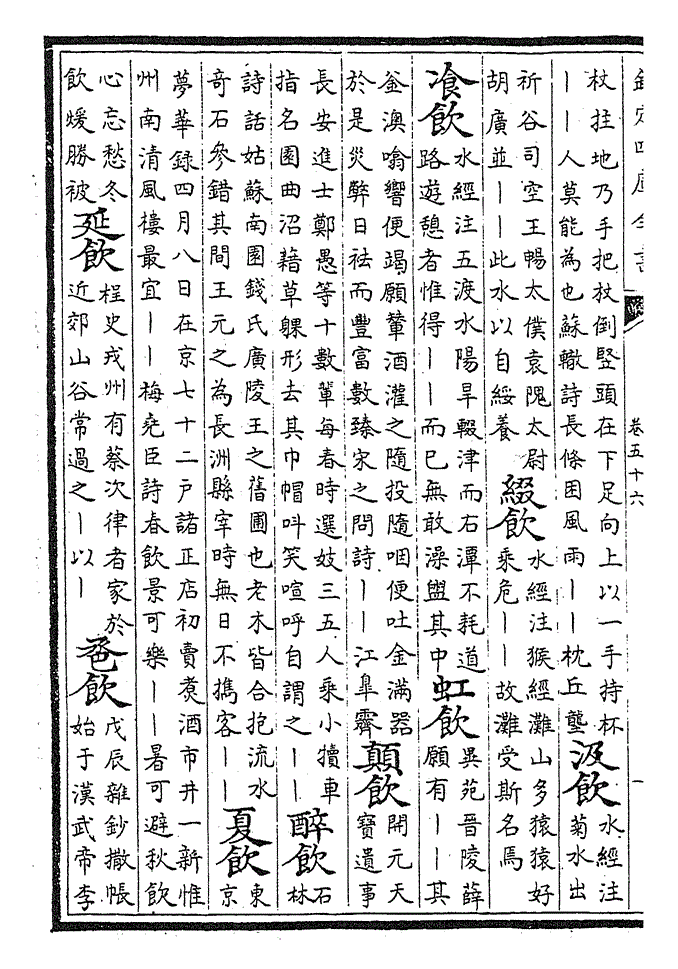 欽定四庫全書
卷五十六
杖拄地乃手把杖倒豎頭在下足向上以一手持杯
——人莫能為也蘇轍詩長條困風雨——枕丘壟
汲飲
水經注
菊水出
祈谷司空王暢太僕袁隗太尉
胡廣並——此水以自綏養
綴飲
水經注猴經灘山多猿猿好
乘危——故灘受斯名焉
飡飲
水經注五渡水陽旱輟津而石潭不耗道
路遊憩者惟得——而已無敢澡盥其中
虹飲
異苑晉陵薛
願有——其
釜澳噏響便竭願輦酒灌之隨投隨咽便吐金滿器
於是災弊日祛而豐富數臻宋之問詩——江臯霽
顛飲
開元天
寶遺事
長安進士鄭愚等十數輩每春時選妓三五人乘小犢車
指名園曲沼藉草躶形去其巾帽叫笑喧呼自謂之——
醉飲
石
林
詩話姑蘇南園錢氏廣陵王之舊圃也老木皆合抱流水
奇石參錯其間王元之為長洲縣宰時無日不擕客——
夏飲
東
京
夢華録四月八日在京七十二戶諸正店初賣煑酒市井一新惟
州南清風樓最宜——梅堯臣詩春飲景可樂——暑可避秋飲
心忘愁冬
飲煖勝被
延飲
桯史戎州有蔡次律者家於
近郊山谷常過之—以—
卺飲
戊辰雜鈔撒帳
始于漢武帝李